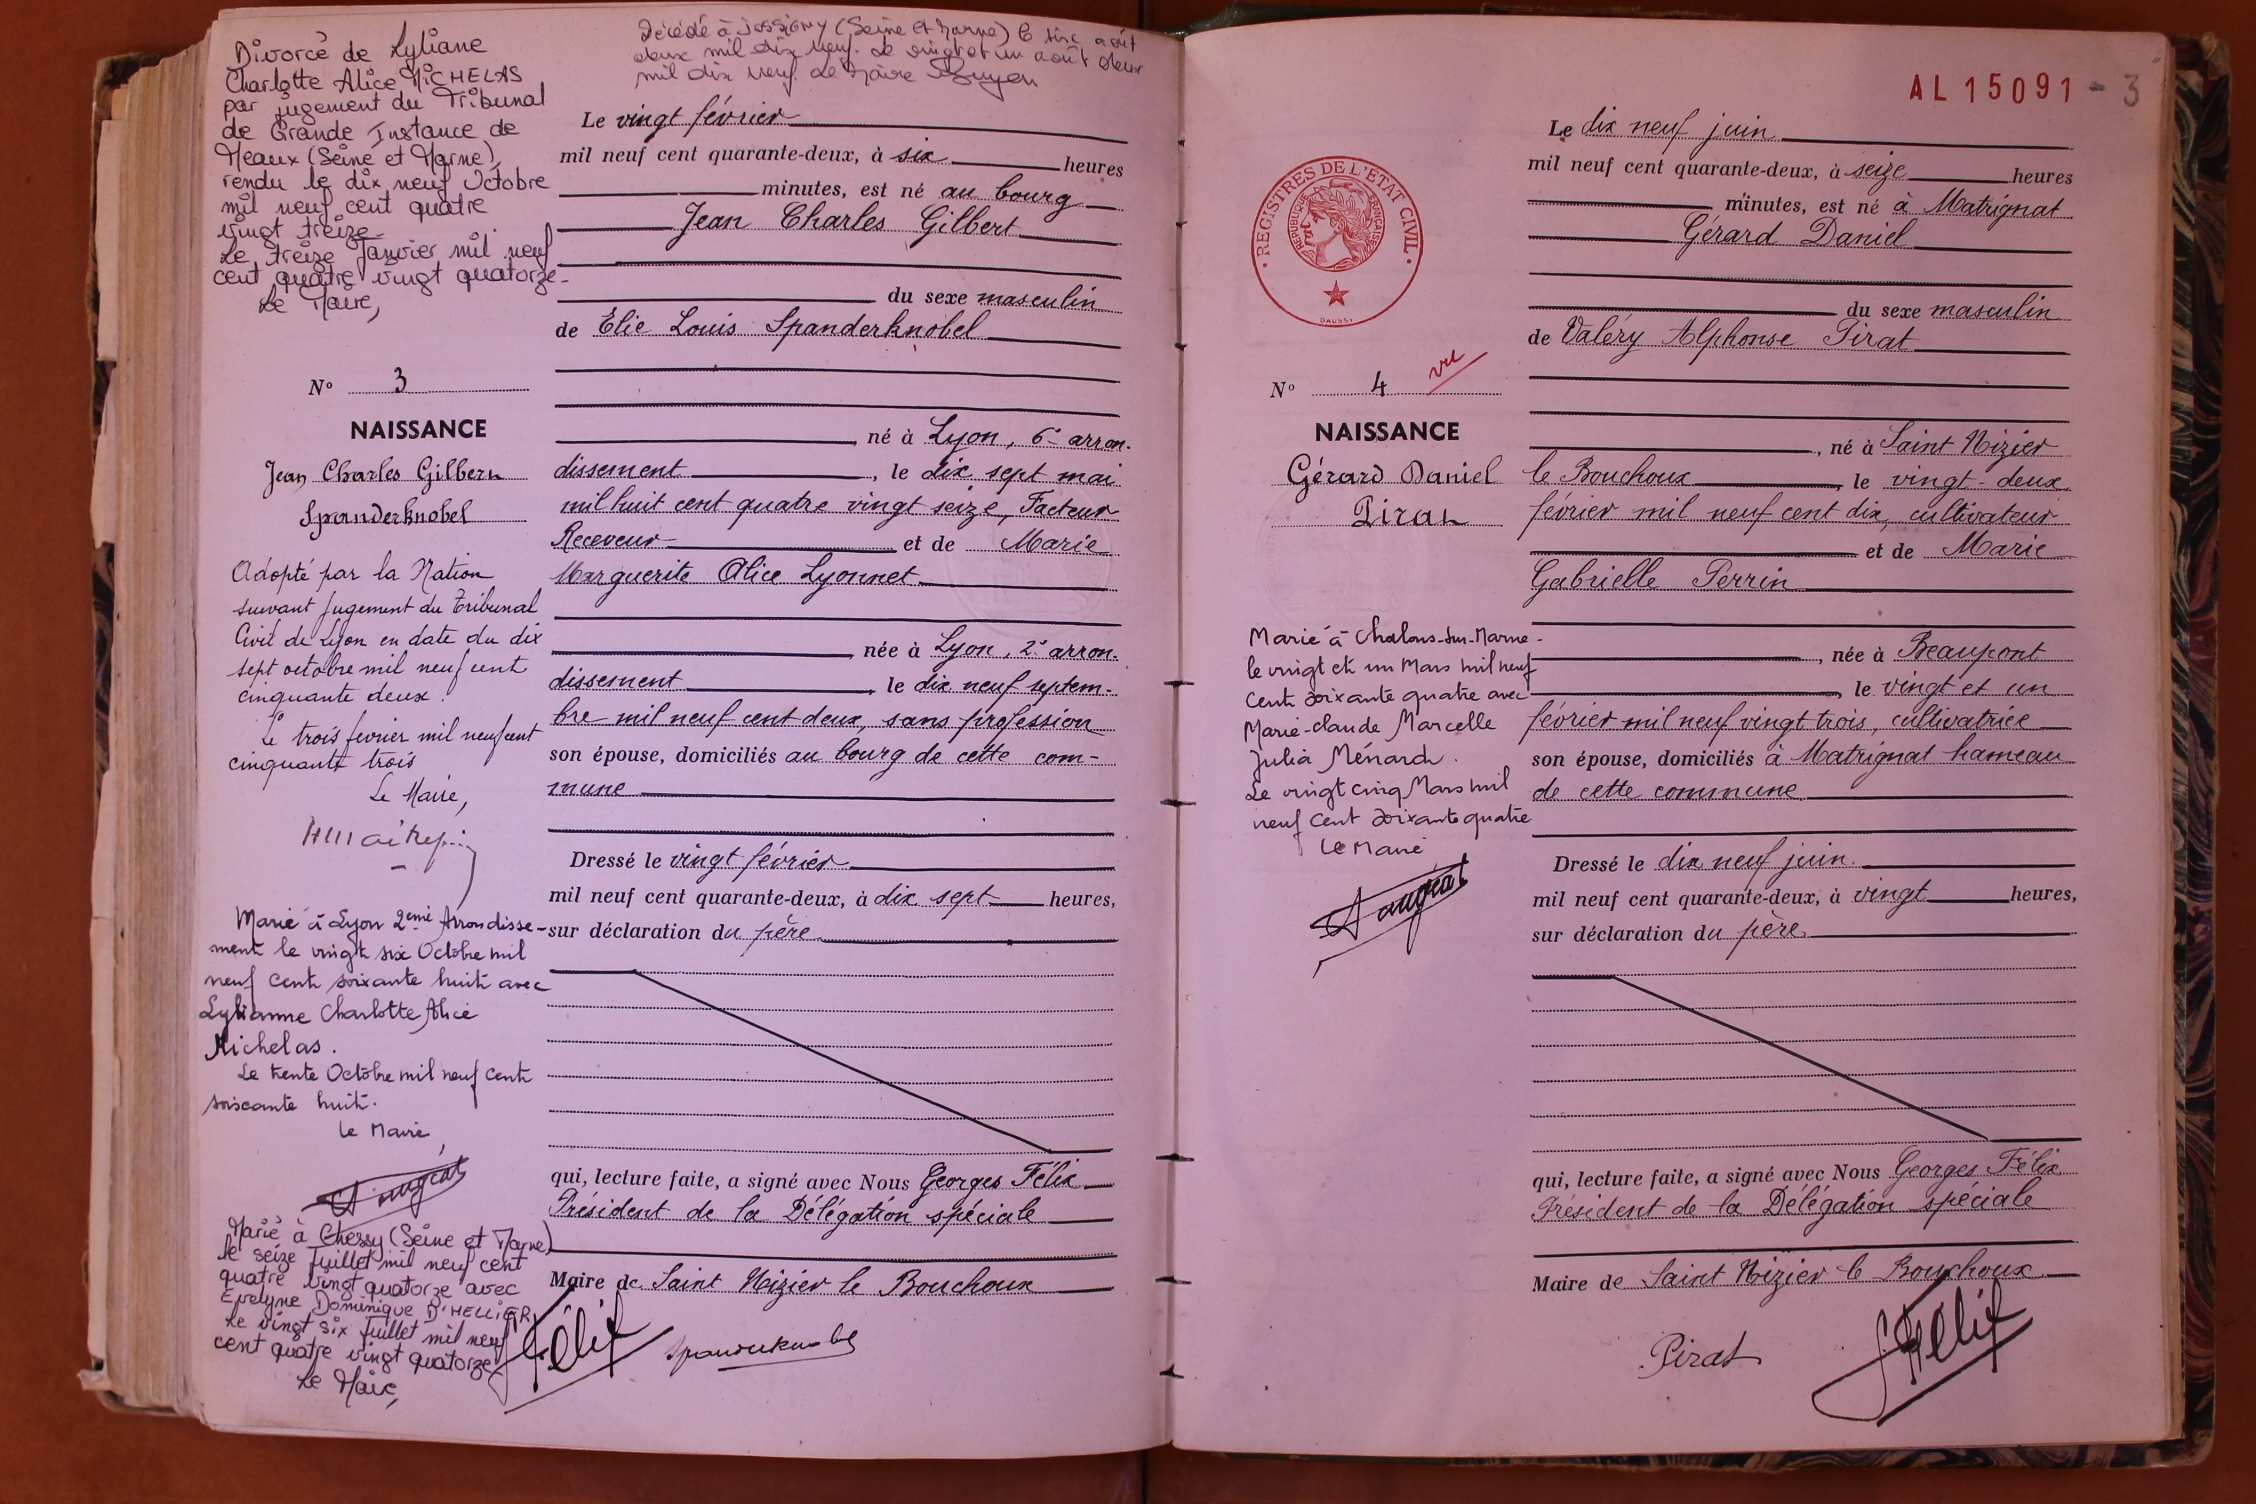 Divorcé de Lyliane
Charlotte Alice MICHELAS
par jugement du Tribunal
de Grande Instance de
Meaux (Seine et Marne)
rendu le dix neuf Octobre
mil neuf cent quatre
vingt treize
Le treize Janvier mil neuf
cent quatre vingt quatorze
Le Maire,
Décédé à Jossigny (Seine et Marne) le six août
deux mil dix neuf. Le vingt et un août deux
mil dix neuf. Le Maire
N° 3
NAISSANCE
Jean Charles Gilbert
Spanderknobel
Adopté par la Nation
suivant jugement du Tribunal
Civil de Lyon en date du dix
sept octobre mil neuf cent
cinquante deux.
Le trois février mil neuf cent
cinquante trois
Le Maire,
Marié à Lyon 2eme Arrondisse-
ment le vingt six Octobre mil
neuf cent soixante huit avec
Lylianne Charlotte Alice
Michelas.
Le trente Octobre mil neuf cent
soixante huit.
Le Maire,
Marié à Chessy (Seine et Marne)
le seize Juillet mil neuf cent
quatre vingt quatorze avec
Evelyne Dominique D'HELLIER
Le vingt six Juillet mil neuf
cent quatre vingt quatorze
Le Maire,
Le vingt février
mil neuf cent quarante-deux, à six heures
minutes, est né au bourg
Jean Charles Gilbert
du sexe masculin
de Elie Louis Spanderknobel
né à Lyon, 6e arron-
dissement, le dix sept mai
mil huit cent quatre vingt seize, Facteur
Receveur et de Marie
Marguerite Alice Lyonnet
née à Lyon, 2e arron-
dissement, le dix neuf septem-
bre mil neuf cent deux, sans profession
son épouse, domiciliés au bourg de cette com-
mune
Dressé le vingt février
mil neuf cent quarante-deux, à dix sept heures,
sur déclaration du père
qui, lecture faite, a signé avec Nous Georges Félix
Président de la Délégation spéciale
Maire de Saint Nizier le Bouchoux
Félix
AL 15091 - 3
REGISTRES DE L'ETAT CIVIL
REPUBLIQUE FRANÇAISE
N° 4 vu
NAISSANCE
Gérard Daniel
Pirat
Marié à Chalons-sur-Marne
le vingt et un Mars mil neuf
cent soixante quatre avec
Marie-Claude Marcelle
Julia Ménard.
Le vingt cinq Mars mil
neuf cent soixante quatre
Le Maire
Le dix neuf juin
mil neuf cent quarante-deux, à seize heures
minutes, est né à Matrignat
Gérard Daniel
du sexe masculin
de Valéry Alphonse Pirat
, né à Saint Nizier
le Bouchoux, le vingt-deux
février mil neuf cent dix, cultivateur
et de Marie
Gabrielle Perrin
, née à Beaupont
, le vingt et un
février mil neuf vingt trois, cultivatrice
son épouse, domiciliés à Matrignat hameau
de cette commune
Dressé le dix neuf juin
mil neuf cent quarante-deux, à vingt heures,
sur déclaration du père
qui, lecture faite, a signé avec Nous Georges Félix
Président de la Délégation spéciale
Maire de Saint Nizier le Bouchoux
Pirat
Félix